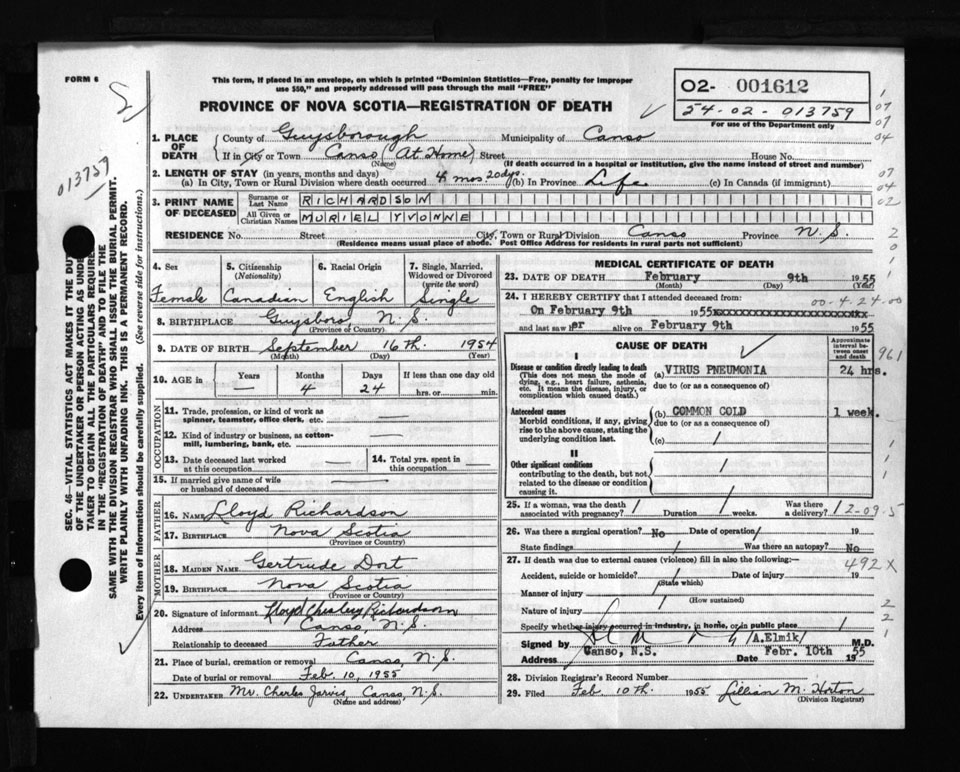 FORM 6
This form, if placed in an envelope, on which is printed "Dominion Statistics—Free, penalty for improper
use $50," and properly addressed will pass through the mail "FREE"
PROVINCE OF NOVA SCOTIA—REGISTRATION OF DEATH
02- 001612
54-02-013759
For use of the Department only
013759
SEC. 46—VITAL STATISTICS ACT MAKES IT THE DUTY
OF THE UNDERTAKER OR PERSON ACTING AS UNDER
TAKER TO OBTAIN ALL THE PARTICULARS REQUIRED
IN THE "REGISTRATION OF DEATH" AND TO FILE THE
SAME WITH THE DIVISION REGISTRAR WHO SHALL ISSUE THE BURIAL PERMIT.
WRITE PLAINLY WITH UNFADING INK. THIS IS A PERMANENT RECORD.
Every item of information should be carefully supplied. (See reverse side for instructions.)
1. PLACE OF DEATH County of Guysborough Municipality of Canso
If in City or Town Canso (At Home) Street House No.
(Name) (If death occurred in a hospital or institution, give the name instead of street and number)
2. LENGTH OF STAY (in years, months and days)
(a) In City, Town or Rural Division where death occurred 4 mos. 20 dys. (b) In Province Life (c) In Canada (if immigrant)
3. PRINT NAME OF DECEASED Surname or Last Name RICHARDSON
All Given or Christian Names MURIEL YVONNE
RESIDENCE No. Street City, Town or Rural Division Canso Province N.S.
(Residence means usual place of abode. Post Office Address for residents in rural parts not sufficient)
4. Sex Female
5. Citizenship (Nationality) Canadian
6. Racial Origin English
7. Single, Married, Widowed or Divorced (write the word) Single
8. BIRTHPLACE Guysboro N.S.
(Province or Country)
9. DATE OF BIRTH September 16th 1954
(Month) (Day) (Year)
10. AGE in Years — Months 4 Days 24 If less than one day old hrs. or min.
OCCUPATION
11. Trade, profession, or kind of work as spinner, teamster, office clerk, etc. —
12. Kind of industry or business, as cotton-mill, lumbering, bank, etc. —
13. Date deceased last worked at this occupation —
14. Total yrs. spent in this occupation —
15. If married give name of wife or husband of deceased —
FATHER
16. NAME Lloyd Richardson
17. BIRTHPLACE Nova Scotia
(Province or Country)
MOTHER
18. MAIDEN NAME Gertrude Dort
19. BIRTHPLACE Nova Scotia
(Province or Country)
20. Signature of informant Lloyd Chesley Richardson
Address Canso, N.S.
Relationship to deceased Father
21. Place of burial, cremation or removal Canso, N.S.
Date of burial or removal Feb. 10, 1955
22. UNDERTAKER Mr. Charles Jarvis Canso, N.S.
(Name and address)
MEDICAL CERTIFICATE OF DEATH
23. DATE OF DEATH February 9th 1955
(Month) (Day) (Year)
24. I HEREBY CERTIFY that I attended deceased from: 00-4-24-00
On February 9th 1955xxxxxxxxxxxxxxxxxxxxxxx
and last saw her alive on February 9th 1955
CAUSE OF DEATH
Approximate interval between onset and death
961
I
Disease or condition directly leading to death (a) VIRUS PNEUMONIA 24 hrs.
(This does not mean the mode of dying, e.g., heart failure, asthenia, etc. It means the disease, injury, or complication which caused death.)
due to (or as a consequence of)
Antecedent causes (b) COMMON COLD 1 week.
Morbid conditions, if any, giving rise to the above cause, stating the underlying condition last.
due to (or as a consequence of)
(c) /
II
Other significant conditions
contributing to the death, but not related to the disease or condition causing it.
25. If a woman, was the death associated with pregnancy? / Duration / weeks. Was there a delivery? / 2-09-5
26. Was there a surgical operation? No Date of operation / 19
State findings / Was there an autopsy? No
27. If death was due to external causes (violence) fill in also the following:— 492X
Accident, suicide or homicide? / Date of injury 19
(State which)
Manner of injury
(How sustained)
Nature of injury
Specify whether injury occurred in industry, in home, or in public place /
Signed by /A.Elmik/ M.D.
Address Canso, N.S. Date Febr. 10th 1955
28. Division Registrar's Record Number
29. Filed Feb. 10th. 1955 Lillian M. Horton
(Division Registrar)